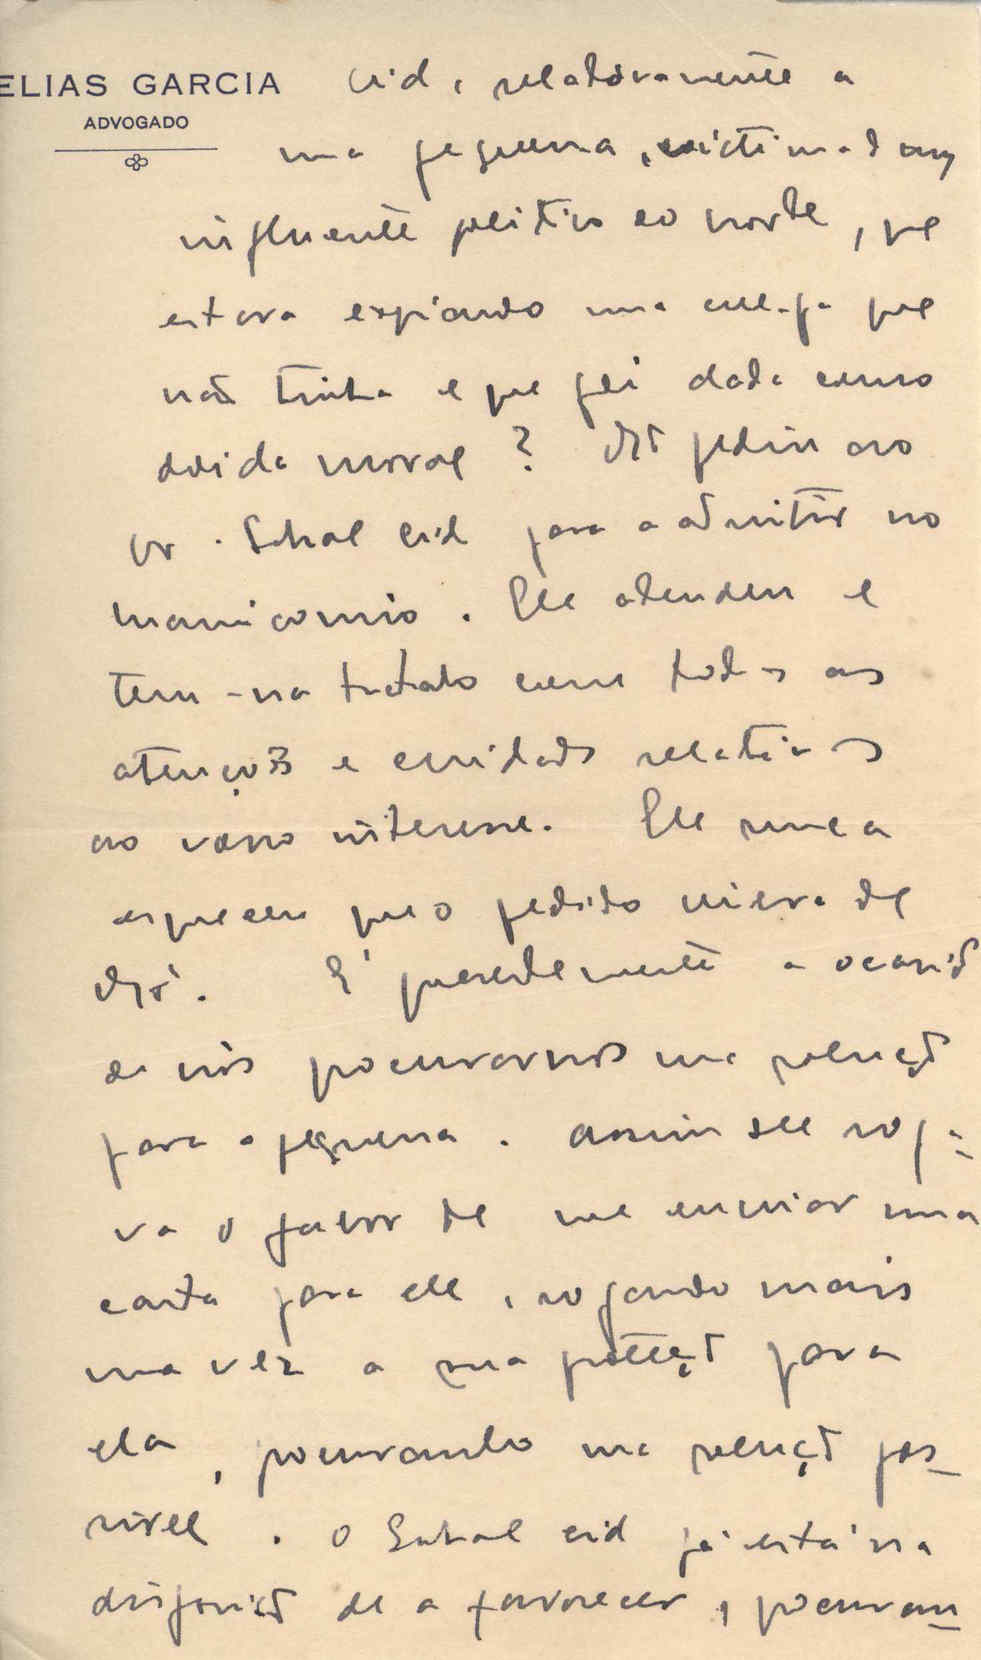 ELIAS GARCIA
ADVOGADO
Cid, relativamente a
uma pequena, victima d'um
influente politico do norte, que
estava expiando uma culpa que
não tinha e que foi dada como
doida moral? V. pediu ao
Dr. Sobral Cid para a admitir no
manicomio. Elle atendeu e
tem-na tratado com todas as
atenções e cuidados relativos
ao vosso interesse. Elle nunca
esqueceu que o pedido viera de
V. É presentemente a ocasião
de nós procurarmos uma solução
para a pequena. Assim lhe roga-
va o favor de me enviar uma
carta para ele, rogando mais
uma vez a sua proteção para
ela, procurando uma solução pos-
sivel. O Sobral Cid já está na
disposição de a favorecer, procuran-